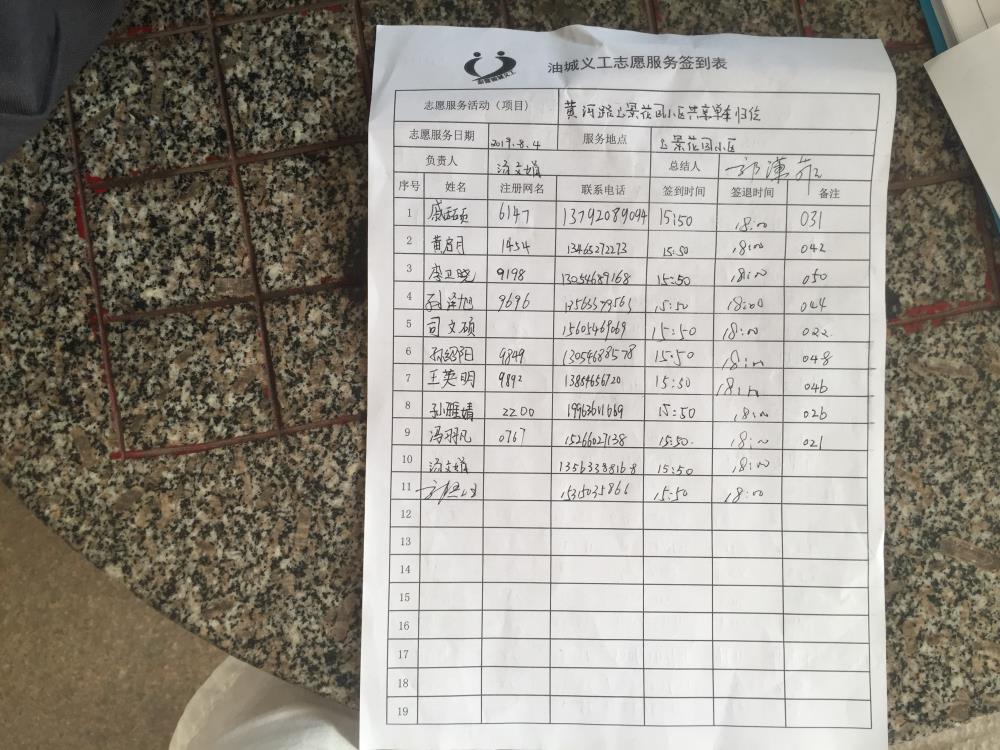 油城义工志愿服务签到表
志愿服务活动（项目） 黄河路上景花园小区共享单车归位
志愿服务日期 2019.8.4 服务地点 上景花园小区
负责人 汤文娟 总结人
序号 姓名 注册网名 联系电话 签到时间 签退时间 备注
1 6147 13792089094 15:50 18:00 031
2 黄启月 1454 13465272273 15:50 18:00 042
3 李卫晓 9198 13054689168 15:50 18:00 050
4 孙泽旭 9696 15:50 18:00 044
5 司文硕 15605469069 15:50 18:00 022
6 孙绍阳 9849 13054688578 15:50 18:00 048
7 王英明 9892 13854656720 15:50 18:00 046
8 孙雅婧 2200 19963611669 15:50 18:00 026
9 冯羽凡 0767 15266027138 15:50 18:00 021
10 汤文娟 13563388168 15:50 18:00
11 15:50 18:00
12
13
14
15
16
17
18
19